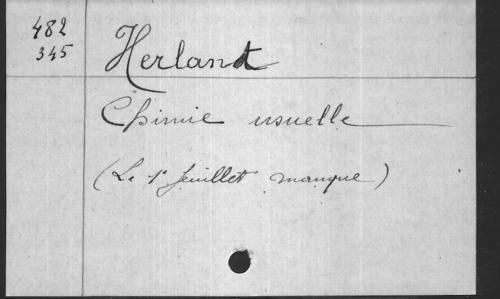 482
345
Herland
Chimie usuelle
(Le 1er feuillet manque)